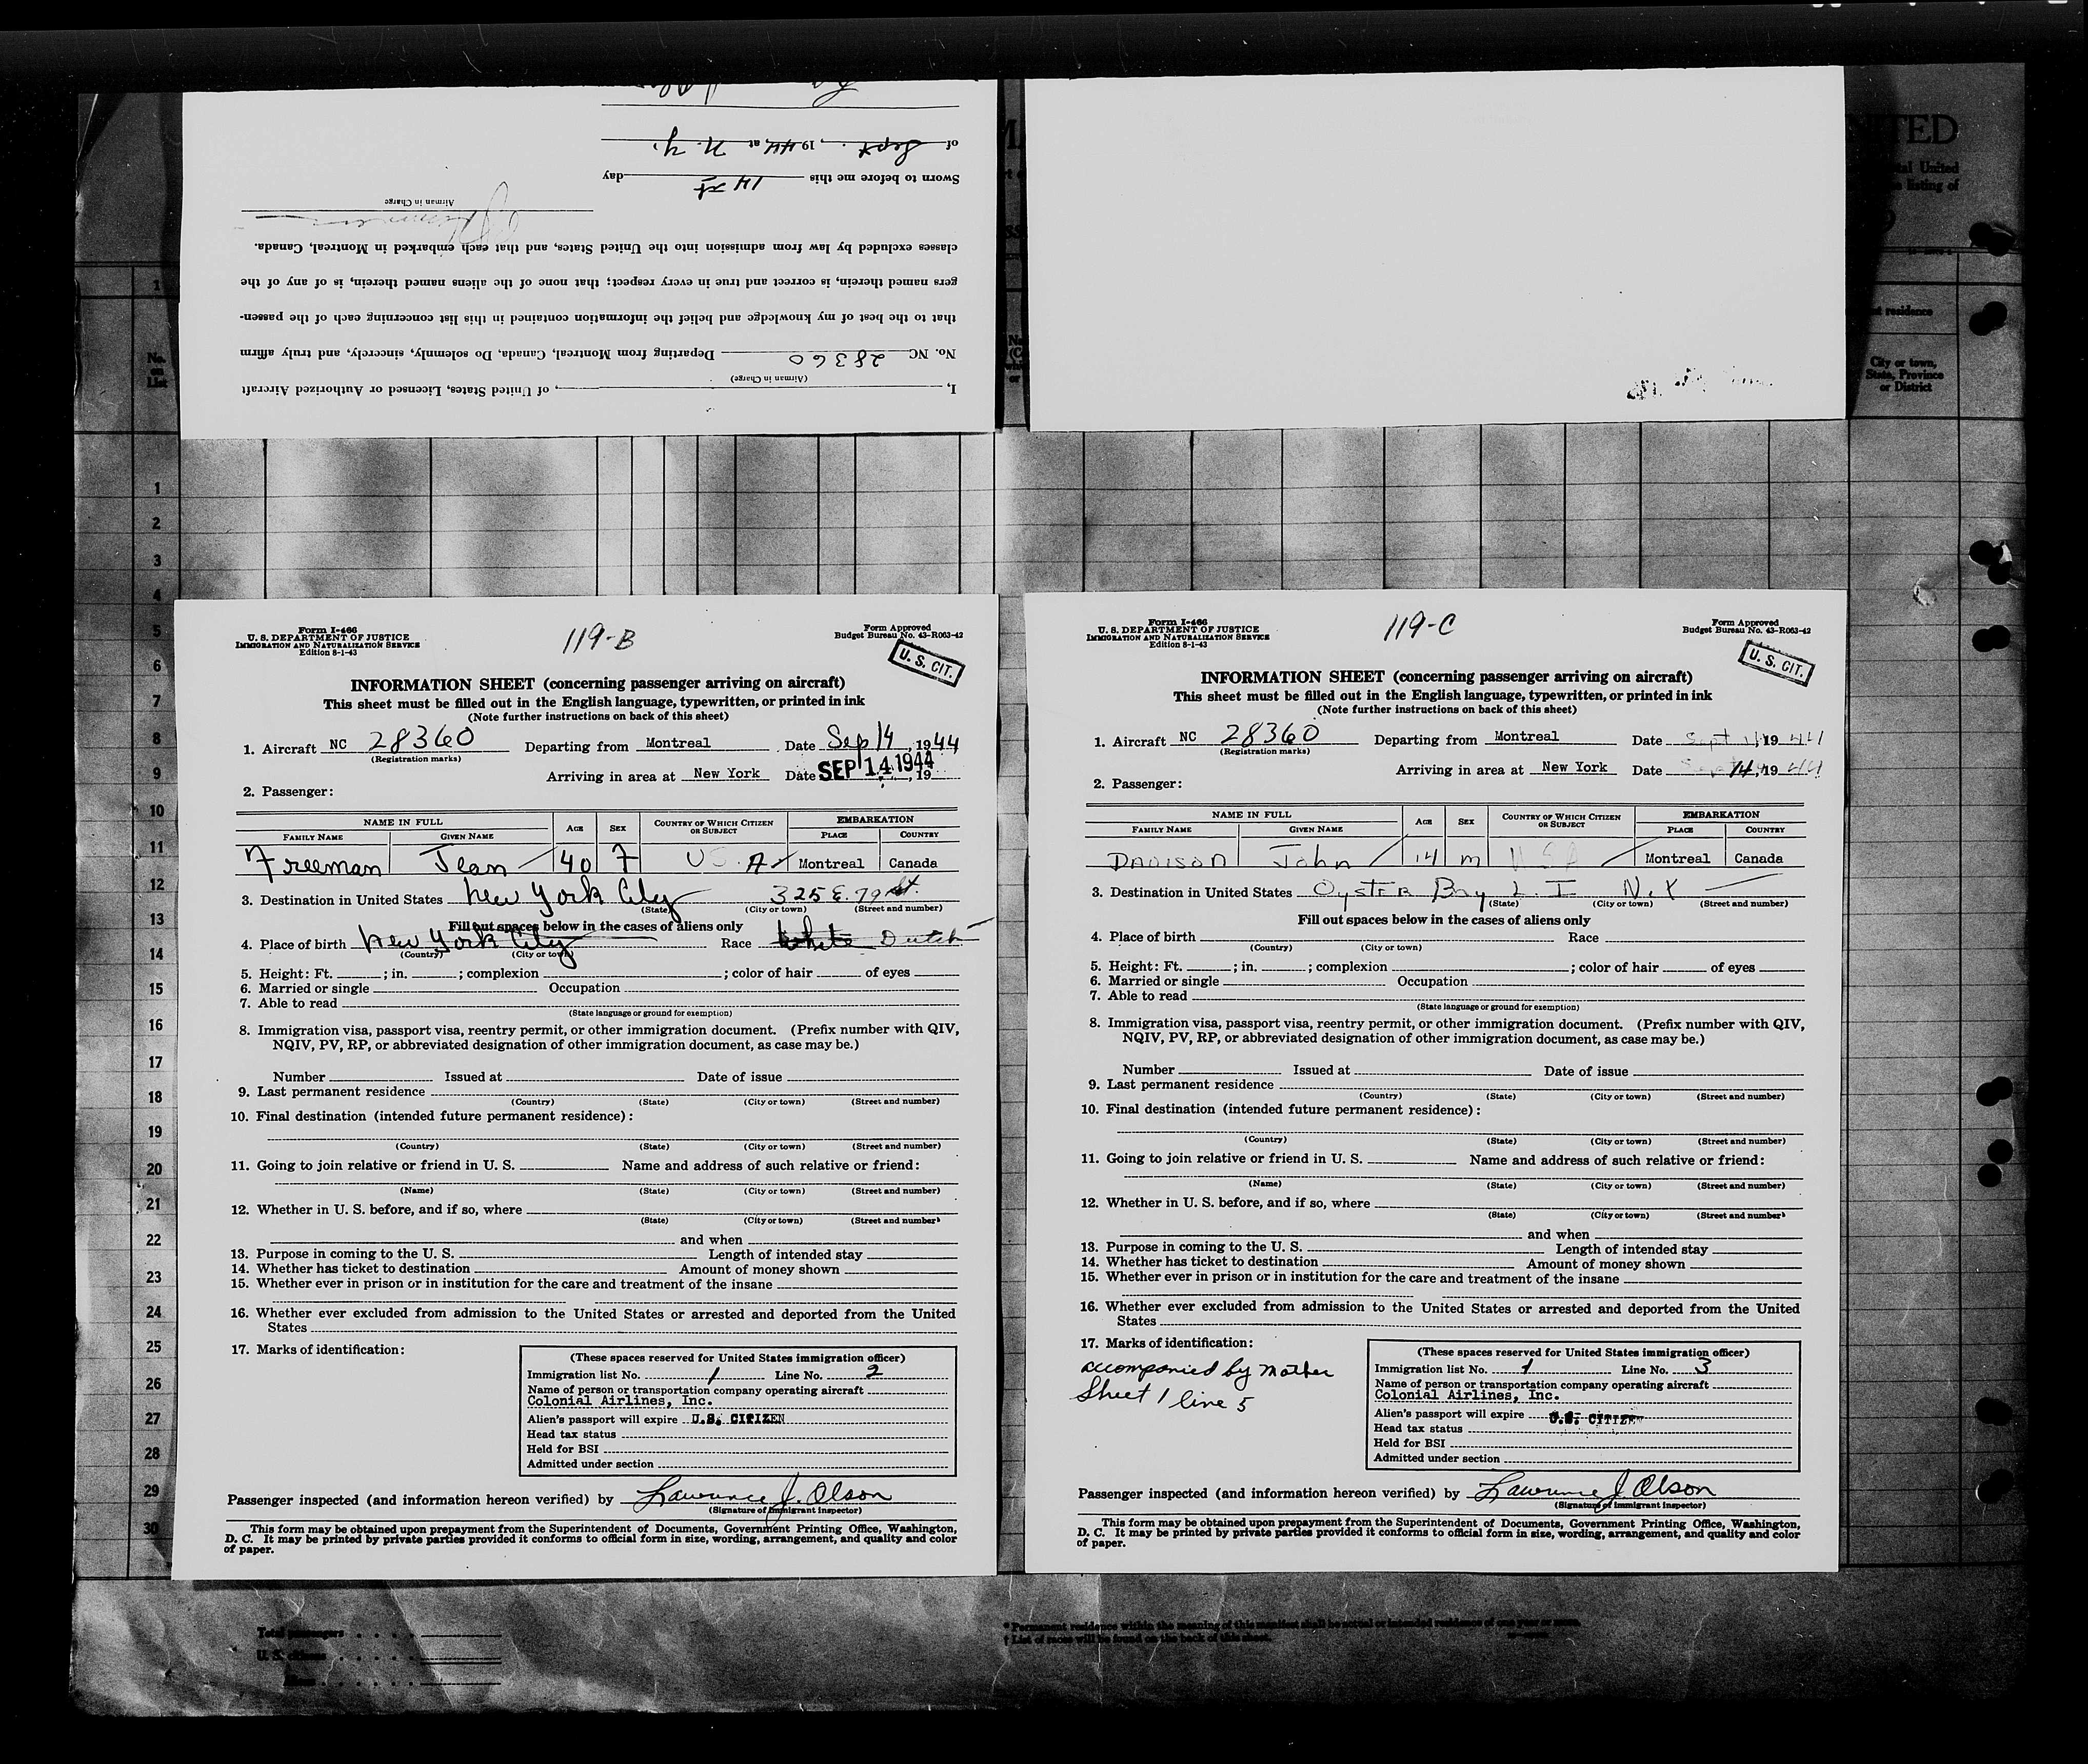 I, of United States, Licensed or Authorized Aircraft
(Airman in Charge)
No. NC 28360 Departing from Montreal, Canada, Do solemnly, sincerely, and truly affirm
that to the best of my knowledge and belief the information contained in this list concerning each of the passen-
gers named therein, is correct and true in every respect; that none of the aliens named therein, is of any of the
classes excluded by law from admission into the United States, and that each embarked in Montreal, Canada.
Airman in Charge
Sworn to before me this 14 day
of Sept. , 1944, at N. Y.
NITED
tal United
listing of
t residence
City or town,
State, Province
or District
No.
on
List
1
1
2
3
4
5
6
7
8
9
10
11
12
13
14
15
16
17
18
19
20
21
22
23
24
25
26
27
28
29
30
Form I-466
U. S. DEPARTMENT OF JUSTICE
IMMIGRATION AND NATURALIZATION SERVICE
Edition 8-1-43
119-B
Form Approved
Budget Bureau No. 43-R063-42
U. S. CIT.
INFORMATION SHEET (concerning passenger arriving on aircraft)
This sheet must be filled out in the English language, typewritten, or printed in ink
(Note further instructions on back of this sheet)
1. Aircraft NC 28360 Departing from Montreal Date Sep 14, 1944
(Registration marks)
Arriving in area at New York Date SEP 14 1944, 19
2. Passenger:
NAME IN FULL AGE SEX COUNTRY OF WHICH CITIZEN OR SUBJECT EMBARKATION
FAMILY NAME GIVEN NAME PLACE COUNTRY
Freeman Jean 40 F US.A Montreal Canada
3. Destination in United States New York City 325 E. 79 St.
(State) (City or town) (Street and number)
Fill out spaces below in the cases of aliens only
4. Place of birth New York City Race White Dutch
(Country) (City or town)
5. Height: Ft. ; in. ; complexion ; color of hair of eyes
6. Married or single Occupation
7. Able to read
(State language or ground for exemption)
8. Immigration visa, passport visa, reentry permit, or other immigration document. (Prefix number with QIV,
NQIV, PV, RP, or abbreviated designation of other immigration document, as case may be.)
Number Issued at Date of issue
9. Last permanent residence
(Country) (State) (City or town) (Street and number)
10. Final destination (intended future permanent residence):
(Country) (State) (City or town) (Street and number)
11. Going to join relative or friend in U. S. Name and address of such relative or friend:
(Name) (State) (City or town) (Street and number)
12. Whether in U. S. before, and if so, where
(State) (City or town) (Street and number)
and when
13. Purpose in coming to the U. S. Length of intended stay
14. Whether has ticket to destination Amount of money shown
15. Whether ever in prison or in institution for the care and treatment of the insane
16. Whether ever excluded from admission to the United States or arrested and deported from the United
States
17. Marks of identification:
(These spaces reserved for United States immigration officer)
Immigration list No. 1 Line No. 2
Name of person or transportation company operating aircraft
Colonial Airlines, Inc.
Alien's passport will expire U.S. CITIZEN
Head tax status
Held for BSI
Admitted under section
Passenger inspected (and information hereon verified) by Lawrence J. Olson
(Signature of immigrant inspector)
This form may be obtained upon prepayment from the Superintendent of Documents, Government Printing Office, Washington,
D. C. It may be printed by private parties provided it conforms to official form in size, wording, arrangement, and quality and color
of paper.
Form I-466
U. S. DEPARTMENT OF JUSTICE
IMMIGRATION AND NATURALIZATION SERVICE
Edition 8-1-43
119-C
Form Approved
Budget Bureau No. 43-R063-42
U. S. CIT.
INFORMATION SHEET (concerning passenger arriving on aircraft)
This sheet must be filled out in the English language, typewritten, or printed in ink
(Note further instructions on back of this sheet)
1. Aircraft NC 28360 Departing from Montreal Date Sept 14, 1944
(Registration marks)
Arriving in area at New York Date Sept 14, 1944
2. Passenger:
NAME IN FULL AGE SEX COUNTRY OF WHICH CITIZEN OR SUBJECT EMBARKATION
FAMILY NAME GIVEN NAME PLACE COUNTRY
DAVISON John 14 m USA Montreal Canada
3. Destination in United States Oyster Bay L. I N.Y
(State) (City or town) (Street and number)
Fill out spaces below in the cases of aliens only
4. Place of birth Race
(Country) (City or town)
5. Height: Ft. ; in. ; complexion ; color of hair of eyes
6. Married or single Occupation
7. Able to read
(State language or ground for exemption)
8. Immigration visa, passport visa, reentry permit, or other immigration document. (Prefix number with QIV,
NQIV, PV, RP, or abbreviated designation of other immigration document, as case may be.)
Number Issued at Date of issue
9. Last permanent residence
(Country) (State) (City or town) (Street and number)
10. Final destination (intended future permanent residence):
(Country) (State) (City or town) (Street and number)
11. Going to join relative or friend in U. S. Name and address of such relative or friend:
(Name) (State) (City or town) (Street and number)
12. Whether in U. S. before, and if so, where
(State) (City or town) (Street and number)
and when
13. Purpose in coming to the U. S. Length of intended stay
14. Whether has ticket to destination Amount of money shown
15. Whether ever in prison or in institution for the care and treatment of the insane
16. Whether ever excluded from admission to the United States or arrested and deported from the United
States
17. Marks of identification:
accompanied by mother
Sheet 1 line 5
(These spaces reserved for United States immigration officer)
Immigration list No. 1 Line No. 3
Name of person or transportation company operating aircraft
Colonial Airlines, Inc.
Alien's passport will expire U.S. CITIZEN
Head tax status
Held for BSI
Admitted under section
Passenger inspected (and information hereon verified) by Lawrence J. Olson
(Signature of immigrant inspector)
This form may be obtained upon prepayment from the Superintendent of Documents, Government Printing Office, Washington,
D. C. It may be printed by private parties provided it conforms to official form in size, wording, arrangement, and quality and color
of paper.
Total passengers
U. S. citizens
* Permanent residence within the meaning of this manifest shall be actual or intended residence of one year or more.
† List of races will be found on the back of this sheet.